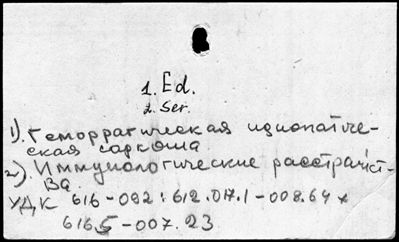 1. Ed.
2. Ser.
1). Геморрагическая идиопатиче-
ская саркома
2). Иммунологические расстройст-
ва
УДК 616-092:612.017.1-008.64 x
616.5-007.23